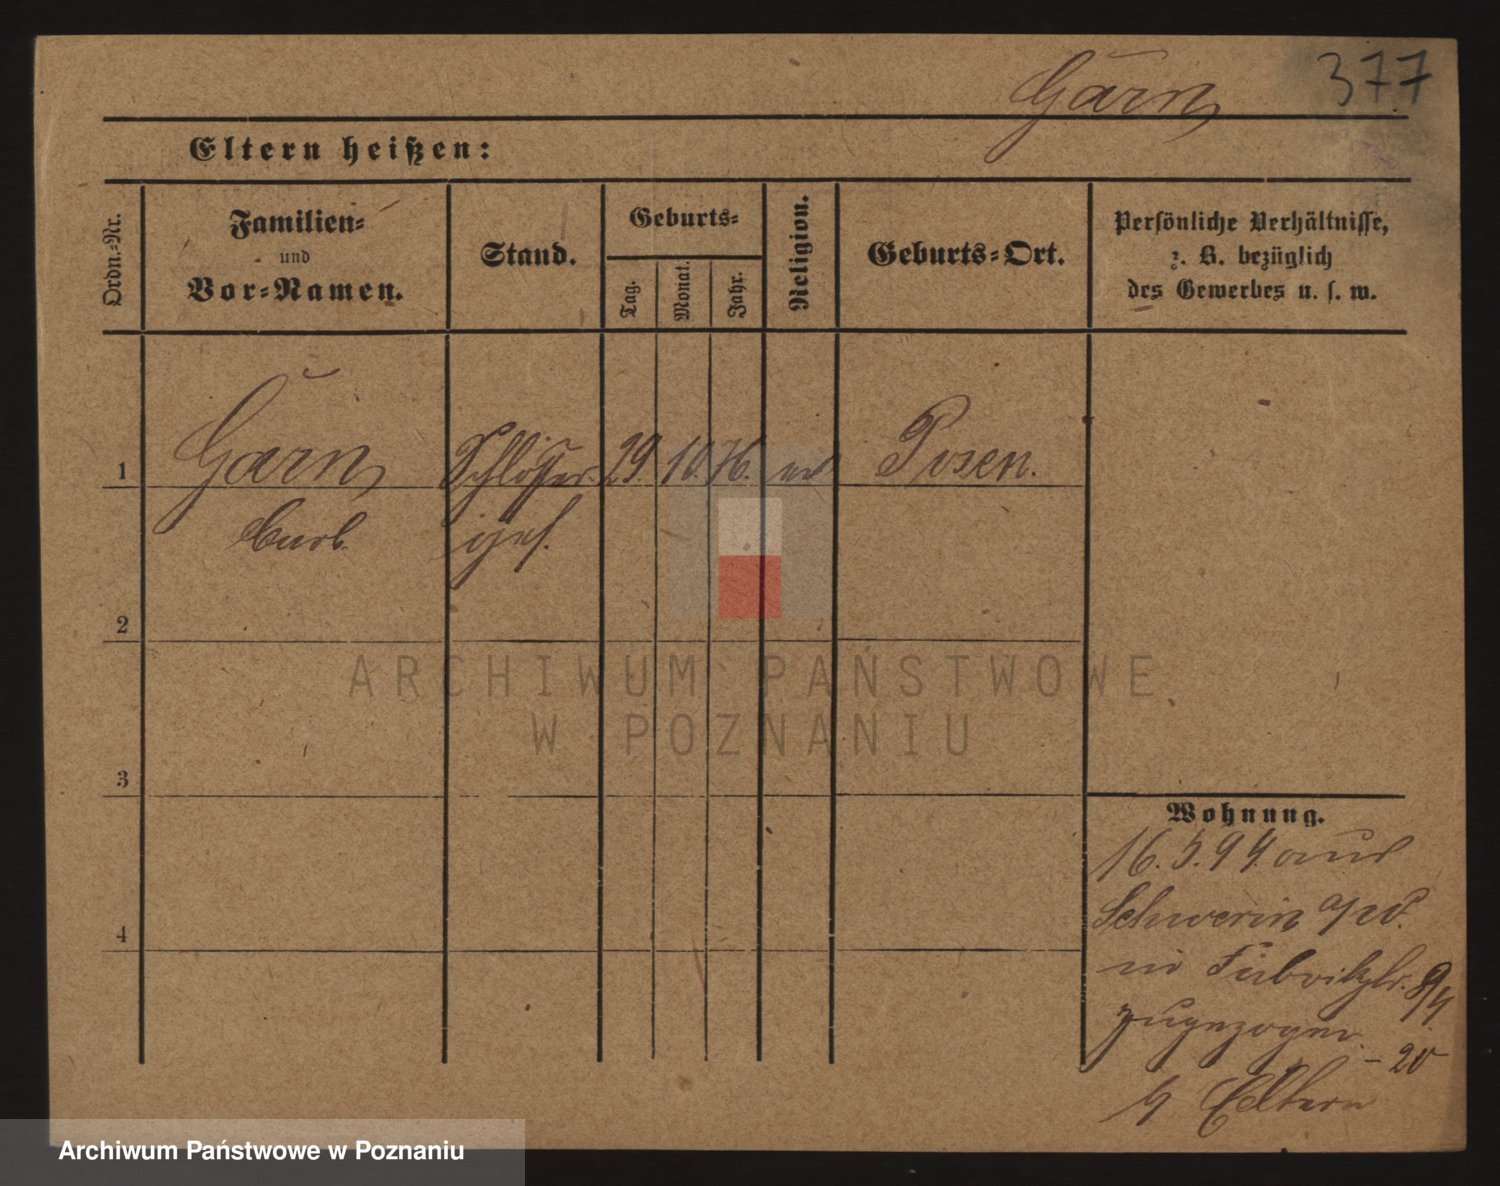 Gärn 377
Eltern heißen:
Ordn.-Nr.
Familien-
und
Vor-Namen.
Stand.
Geburts-
Tag.
Monat.
Jahr.
Religion.
Geburts-Ort.
Persönliche Verhältnisse,
z. B. bezüglich
des Gewerbes u. s. w.
1 Gärn Schlosser 29. 10. 76. Posen.
Curt
2
3
4
Wohnung.
16. 5. 94. aus
Schwerin a/W.
in
zugezogen.
- 20
Eltern
ARCHIWUM PAŃSTWOWE
W POZNANIU
Archiwum Państwowe w Poznaniu